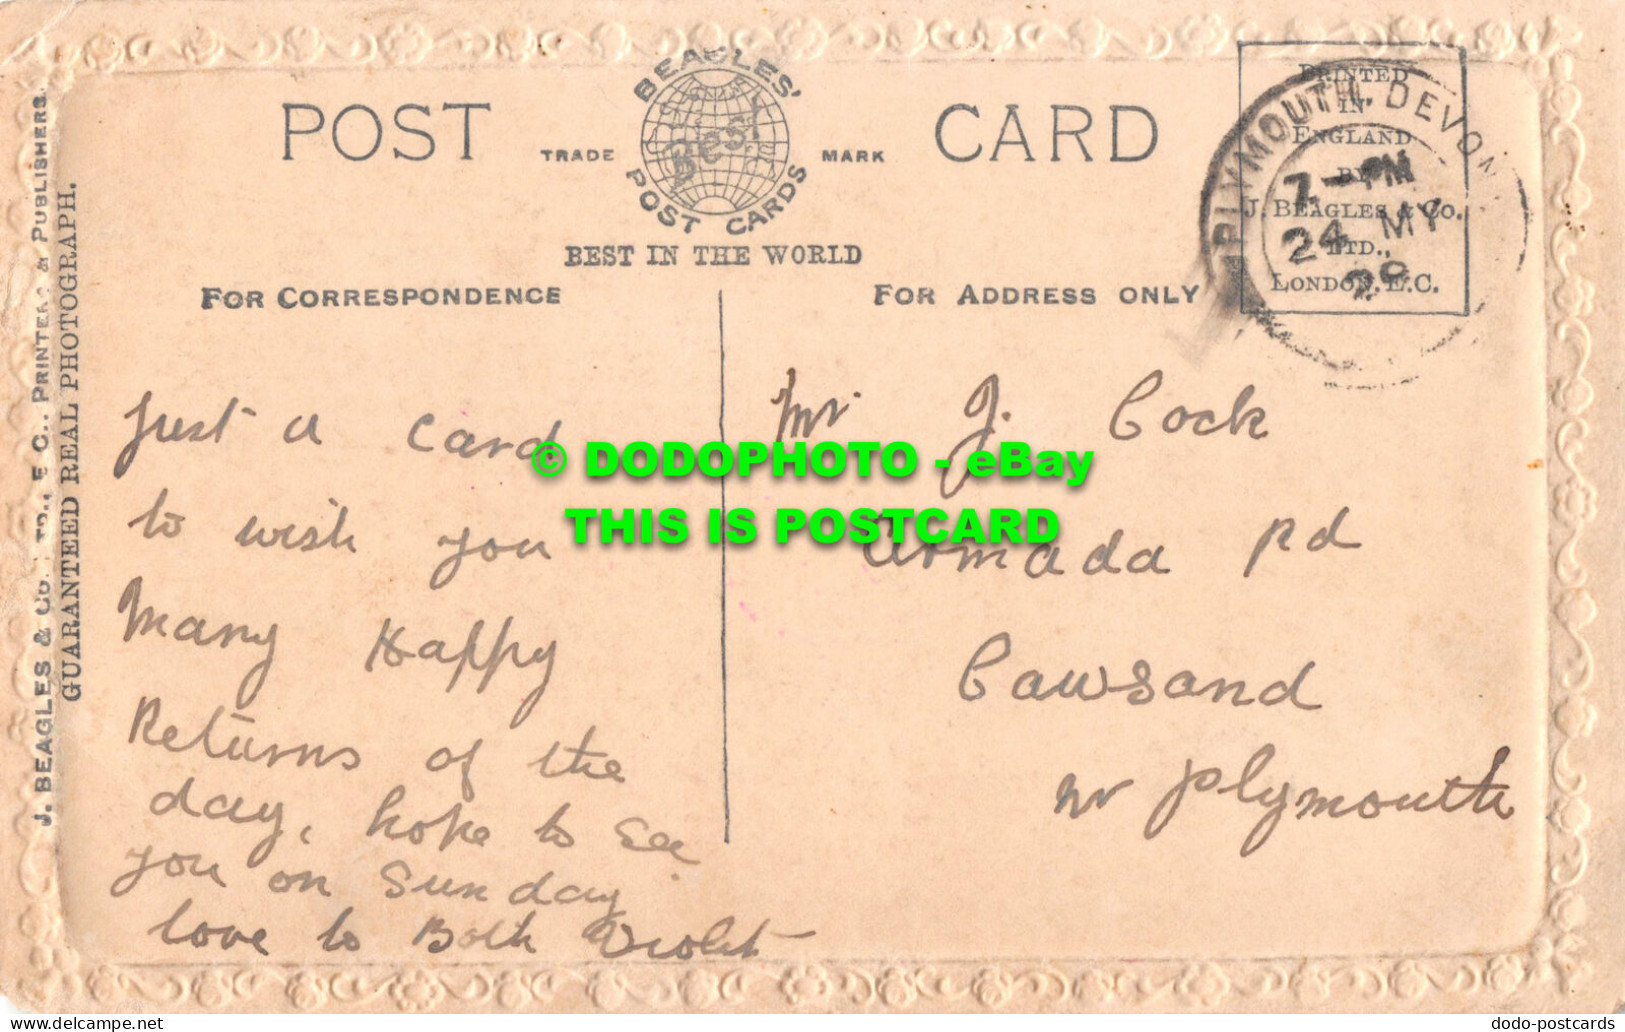 POST CARD
TRADE MARK
BEAGLES'
Best
POST CARDS
BEST IN THE WORLD
FOR CORRESPONDENCE
FOR ADDRESS ONLY
PRINTED
IN
ENGLAND
BY
J. BEAGLES & Co.
LTD.,
LONDON, E.C.
PLYMOUTH, DEVON
7-PM
24 MY
J. BEAGLES & Co. LTD., E.C., PRINTERS & PUBLISHERS.
GUARANTEED REAL PHOTOGRAPH.
Just a card
to wish you
Many Happy
Returns of the
day, hope to see
you on Sunday
love to Both Violet
Mr J. Cock
Armada Rd
Cawsand
nr Plymouth
© DODOPHOTO - eBay
THIS IS POSTCARD
www.delcampe.net
dodo-postcards